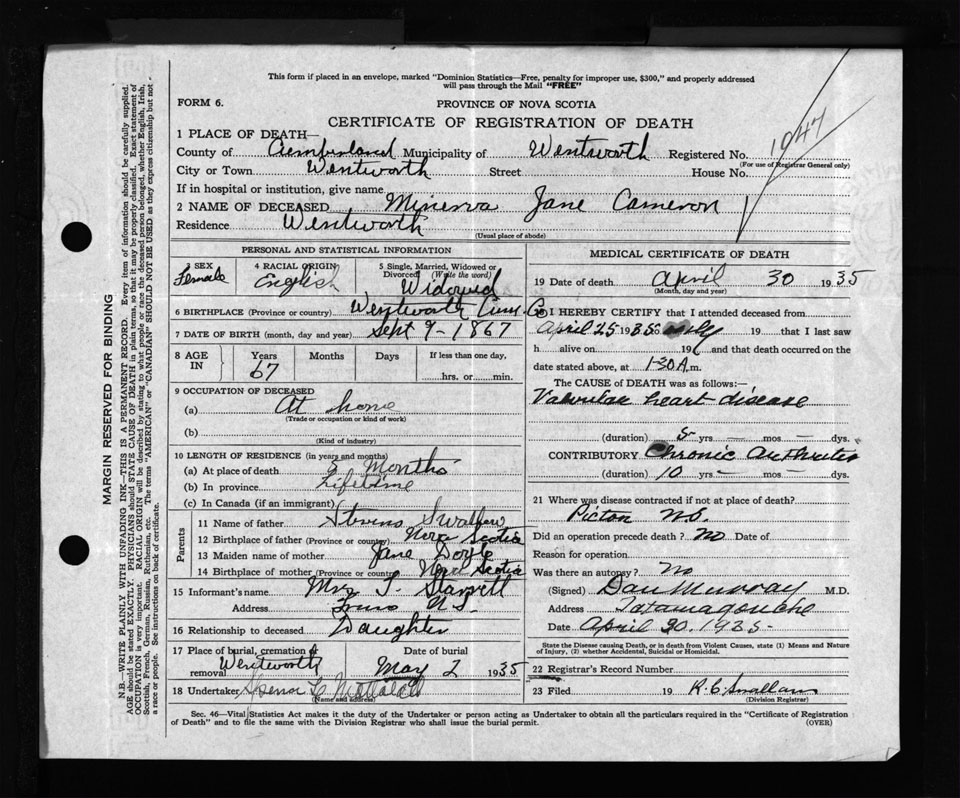 This form if placed in an envelope, marked "Dominion Statistics—Free, penalty for improper use, $300," and properly addressed
will pass through the Mail "FREE"
FORM 6.
PROVINCE OF NOVA SCOTIA
CERTIFICATE OF REGISTRATION OF DEATH
1047
1 PLACE OF DEATH—
County of Cumberland Municipality of Wentworth Registered No.
(For use of Registrar General only)
City or Town Wentworth Street House No.
If in hospital or institution, give name
2 NAME OF DECEASED Minerva Jane Cameron
Residence Wentworth
(Usual place of abode)
PERSONAL AND STATISTICAL INFORMATION
3 SEX
Female
4 RACIAL ORIGIN
English
5 Single, Married, Widowed or
Divorced (Write the word)
Widowed
6 BIRTHPLACE (Province or country) Wentworth Cum. Co
7 DATE OF BIRTH (month, day and year) Sept 9-1867
8 AGE
IN
Years
67
Months
Days
If less than one day,
hrs. or min.
9 OCCUPATION OF DECEASED
(a) At home
(Trade or occupation or kind of work)
(b)
(Kind of industry)
10 LENGTH OF RESIDENCE (in years and months)
(a) At place of death Months
(b) In province Lifetime
(c) In Canada (if an immigrant)
Parents
11 Name of father Swallow
12 Birthplace of father (Province or country) Nova Scotia
13 Maiden name of mother Jane Doyle
14 Birthplace of mother (Province or country) Nova Scotia
15 Informant's name Mrs.
Address Truro N.S.
16 Relationship to deceased Daughter
17 Place of burial, cremation or
removal Wentworth
Date of burial
May 2 1935
18 Undertaker
(Name and address)
MEDICAL CERTIFICATE OF DEATH
19 Date of death April 30 1935
(Month, day and year)
20 I HEREBY CERTIFY that I attended deceased from
April 25 1935 only 19 that I last saw
h alive on 19 and that death occurred on the
date stated above, at 1-30 A.m.
The CAUSE OF DEATH was as follows:—
Valvular heart disease
(duration) 5 yrs — mos — dys.
CONTRIBUTORY Chronic Arthritis
(duration) 10 yrs — mos — dys.
21 Where was disease contracted if not at place of death?
Pictou N.S.
Did an operation precede death? No Date of
Reason for operation
Was there an autopsy? No
(Signed) Dan Murray M.D.
Address Tatamagouche
Date April 30. 1935
State the Disease causing Death, or in death from Violent Causes, state (1) Means and Nature
of Injury, (2) whether Accidental, Suicidal or Homicidal.
22 Registrar's Record Number
23 Filed 19
(Division Registrar)
Sec. 46—Vital Statistics Act makes it the duty of the Undertaker or person acting as Undertaker to obtain all the particulars required in the "Certificate of Registration
of Death" and to file the same with the Division Registrar who shall issue the burial permit.
(OVER)
MARGIN RESERVED FOR BINDING
N.B.—WRITE PLAINLY WITH UNFADING INK—THIS IS A PERMANENT RECORD. Every item of information should be carefully supplied.
AGE should be stated EXACTLY. PHYSICIANS should STATE CAUSE OF DEATH in plain terms, so that it may be properly classified. Exact statement of
OCCUPATION is very important. RACIAL ORIGIN will be described by stating to what people or race the deceased person belonged, whether English, Irish,
Scottish, French, German, Russian, Ruthenian, etc. The terms "AMERICAN" or "CANADIAN" SHOULD NOT BE USED as they express citizenship but not
a race or people. See instructions on back of certificate.